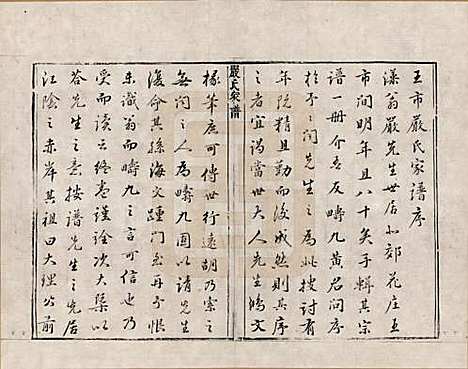 王市嚴氏家譜序
漾翁嚴先生世居小郊花庄王
市間明年且八十矣手輯其宗
譜一冊介吾友疇九黃君問序
於予予聞先生之為此搜討有
年既精且勤而後成然則其序
之者宜謁當世大人先生鴻文
嚴氏家譜
椽筆庶可傳世行遠胡乃索之
無聞之人為疇九固以請先生
復命其孫海文踵門至再予恨
未識翁而疇九之言可信也乃
受而讀云終卷謹詮次大槩以
答先生之意按譜先生之先居
江陰之赤岸其祖曰大理公前